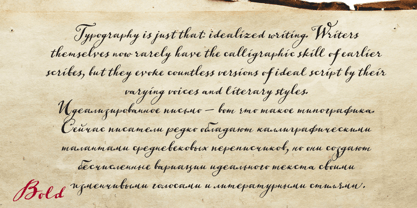 Typography is just that: idealized writing. Writers
themselves now rarely have the calligraphic skill of earlier
scribes, but they evoke countless versions of ideal script by their
varying voices and literary styles.
Идеализированное письмо – вот что такое типографика.
Сейчас писатели редко обладают каллиграфическими
талантами средневековых переписчиков, но они создают
бесчисленные вариации идеального текста своими
изменчивыми голосами и литературными стилями.
Bold